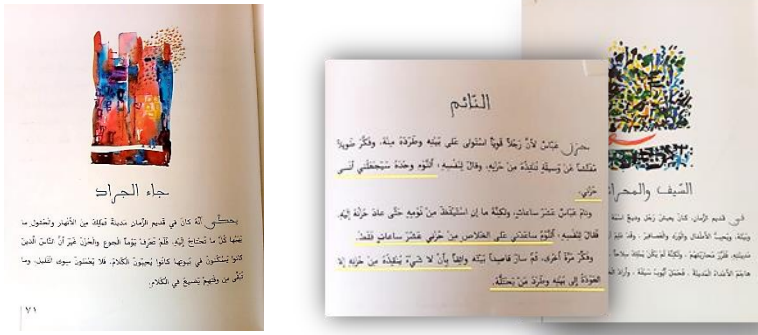 جاء الجراد
يحكى أنّه كانَ في قديمِ الزّمانِ مدينةٌ تملِكُ مِنَ الأنهارِ والحقولِ ما
يَهَبُها كُلَّ ما تَحتاجُ إليْهِ، فَلَمْ تَعْرِفْ يَوْماً الجوعَ والحُزْنَ غَيْرَ أنَّ النّاسَ الّذينَ
كانوا يَسْكُنونَ في بُيوتِها كانوا يُحِبّونَ الكَلامَ، فَلا يَعْمَلونَ سِوى القَليلِ، وما
تَبَقّى مِن وَقْتِهِمْ يَضيعُ في الكَلامِ.
٧١
النّائم
حزن عَبّاسٌ لأنّ رَجُلاً قَوِيّاً اسْتَوْلى عَلى بَيْتِهِ وطَرَدَهُ مِنْهُ، وفَكَّرَ طَويلاً
مُفَتِّشاً عَنْ وَسيلَةٍ تُنْقِذُهُ مِنْ حُزْنِهِ، وقالَ لِنَفْسِهِ: النَّوْمُ وَحْدَهُ سَيَجْعَلُني أنْسى
حُزْني.
ونامَ عَبّاسٌ عَشْرَ ساعاتٍ، ولكِنَّهُ ما إن اسْتَيْقَظَ مِنْ نَوْمِهِ حَتّى عادَ حُزْنُهُ إلَيْهِ،
فَقالَ لِنَفْسِهِ: النَّوْمُ ساعَدَني عَلى الخَلاصِ مِنْ حُزْني عَشْرَ ساعاتٍ فَقَطْ.
وفَكَّرَ مَرَّةً أُخْرى، ثُمَّ سارَ قاصِداً بَيْتَهُ واثِقاً بِأنْ لا شَيْءَ يُنْقِذُهُ مِنْ حُزْنِهِ إلا
العَوْدَةُ إلى بَيْتِهِ وطَرْدُ مَنْ يَحْتَلُّهُ.
السّيف والمحرا
في قديمِ الزّمانِ، كانَ يعيشُ رَجُلٌ وديعٌ
وبَيْتَهُ، ويُحِبُّ الأطْفالَ والوَرْدَ والعَصافيرَ
مَدينَتِهِ، فَقَرَّرَ مُحارَبَتَهُمْ، ولكِنَّهُ لَمْ يَكُنْ يَمْلِكُ سِلاحاً